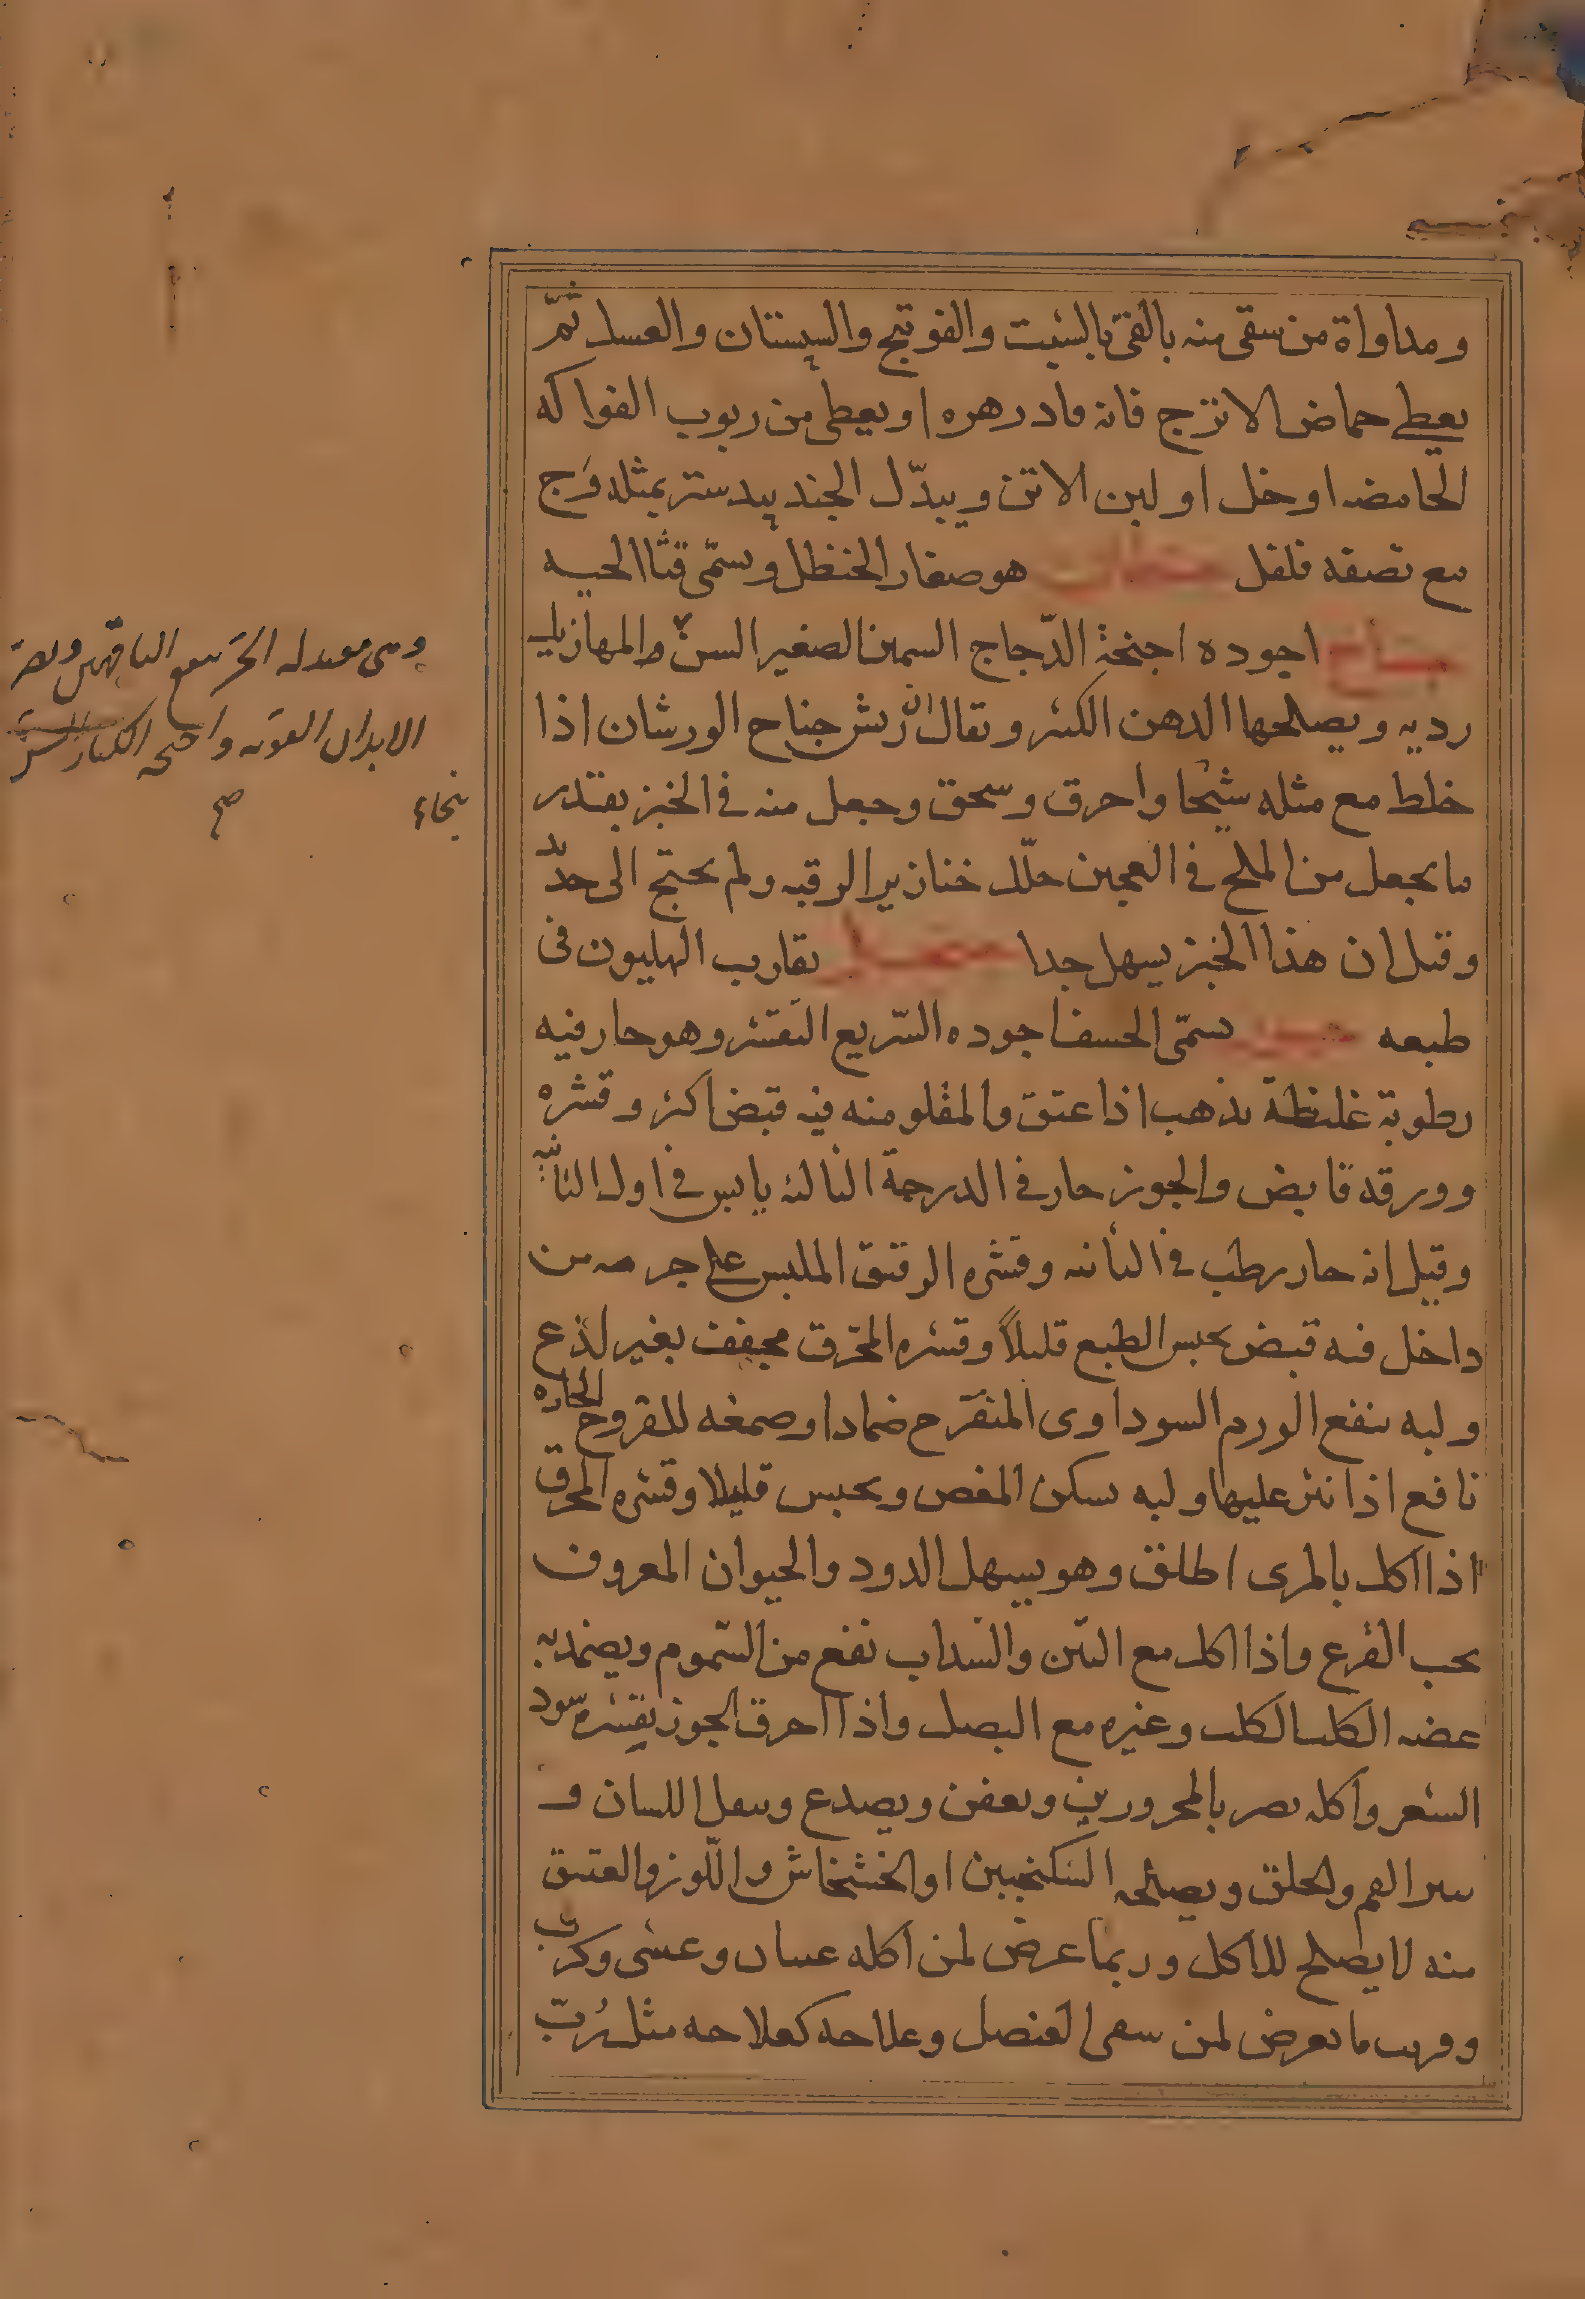 ومداواة من سقى منه بالقئ بالشبت والفوتنج والسپستان والعسل ثمّ
يعطى حماض الاترج فانه فادرهره او يعطى من ربوب الفواكه
الحامضه او خل او لبن الاتن ويبدّل الجندبيدستر بمثله وَج
مع نصفه فلفل هو صغار الحنظل ويسمّى قثا الحيه
جناح اجوده اجنحة الدّجاج السمين الصغير السن والمهازيل
رديه ويصلحها الدهن الكثير ويقال ان ريش جناح الورشان اذا
خلط مع مثله شيحا واحرق وسحق وجعل منه في الخبز بقدر
ما يجعل من الملح في العجين حلّل خنازير الرقبه ولم يحتج الى حديد
وقيل ان هذا الخبز يسهل جدا يقارب الهليون فى
طبعه جوز يسمّى الحسف اجوده السّريع التقشر وهو حار فيه
رطوبة غليظة يذهب اذا عتق والمقلو منه فيه قبض اكثر وقشره
وورقه قابض والجوز حار في الدرجة الثالثه يابس في اول الثانيه
وقيل انه حار رطب في الثانيه وقشره الرقيق الملبس على جرمه من
داخل فيه قبض يحبس الطبع قليلاً وقشره المحرق مجفف بغير لذع
ولبه ينفع الورم السوداوى المتقرّح ضمادا وصمغه للقروح الحاره
نافع اذا نثر عليها ولبه يسكن المغص ويحبس قليلا وقشره المحرق
اذا اكل بالمرى اطلق وهو يسهل الدود والحيوان المعروف
بحب القرع واذا اكل مع التين والسّداب نفع من السّموم ويضمد به
عضه الكلب الكلب وغيره مع البصل واذا احرق الجوز بقشره سود
الشعر واكله يضر بالمحرورين ويعفن ويصدع ويثقل اللسان و
يبثر الفم والحلق ويصلحه السّكنجبين او الخشخاش واللّوز والعتيق
منه لا يصلح للاكل وربما عرض لمن اكله غثيان وغشى وكرب
وقريب ما يعرض لمن سقى العنصل وعلاجه كعلاجه مثل رُبّ
وهى معتدله الحر ينفع الناقهين ويضر
الابدان القويه واجنحه الكبار
صح